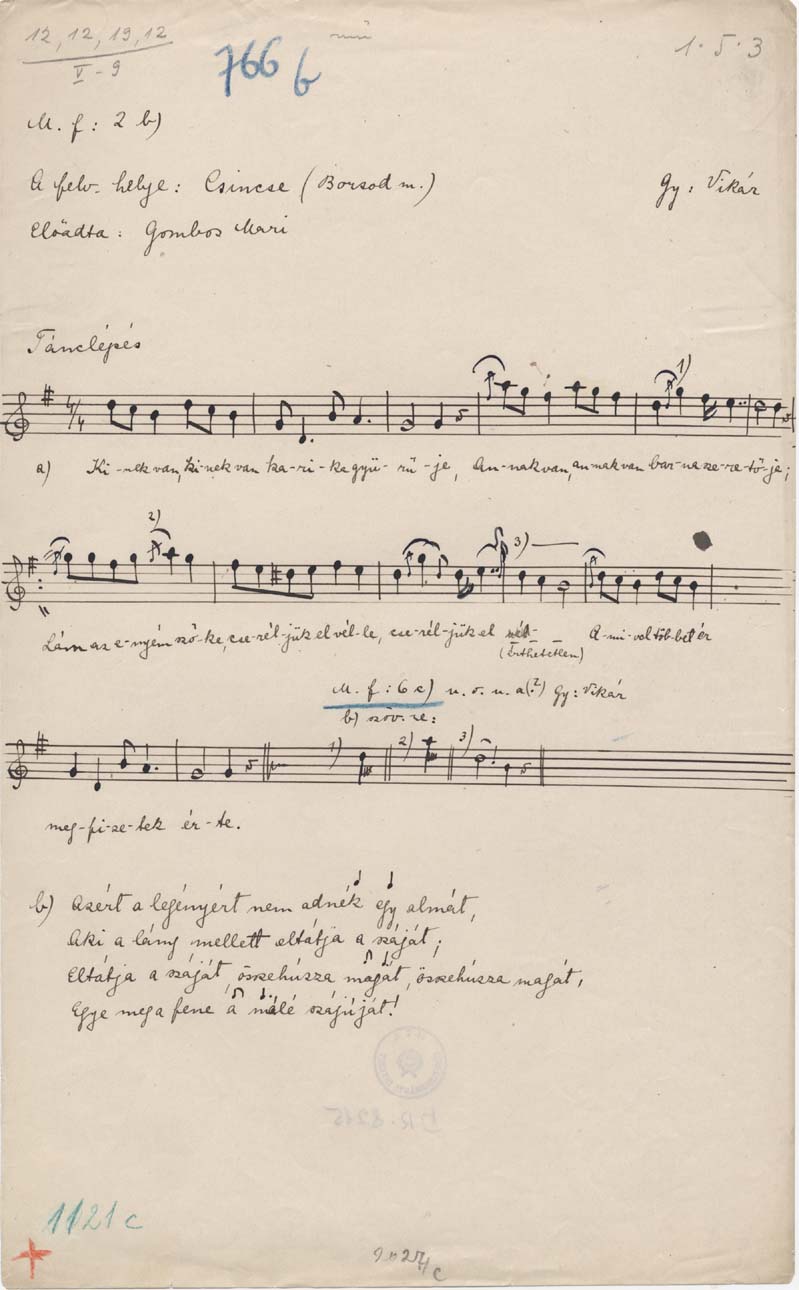 12, 12, 19, 12
V - 9
766 b
1 . 5 . 3
M. f : 2 b)
A felv. helye : Csincse (Borsod m.)
Gy : Vikár
Előadta : Gombos Mari
Tánclépés
4/4
1)
a) Ki-nek van, ki-nek van ka-ri-ka gyü-rü-je, An-nak van, an-nak van bar-na sze-re-tő-je;
2)
3)
Lám az e-nyém sző-ke, cse-rél-jük el vél-le, cse-rél-jük el A-mi-vel töb-bet ér
(érthetetlen)
M. f : 6 c) u. o. u. a (?) Gy : Vikár
b) szöv. re :
1) 2) 3)
meg-fi-ze-tek ér-te.
b) Azért a legényért nem adnék egy almát,
Aki a lány mellett eltátja a száját ;
Eltátja a száját, összehúzza magát, összehúzza magát,
Egye meg a fene a málé szájúját!
1121 c